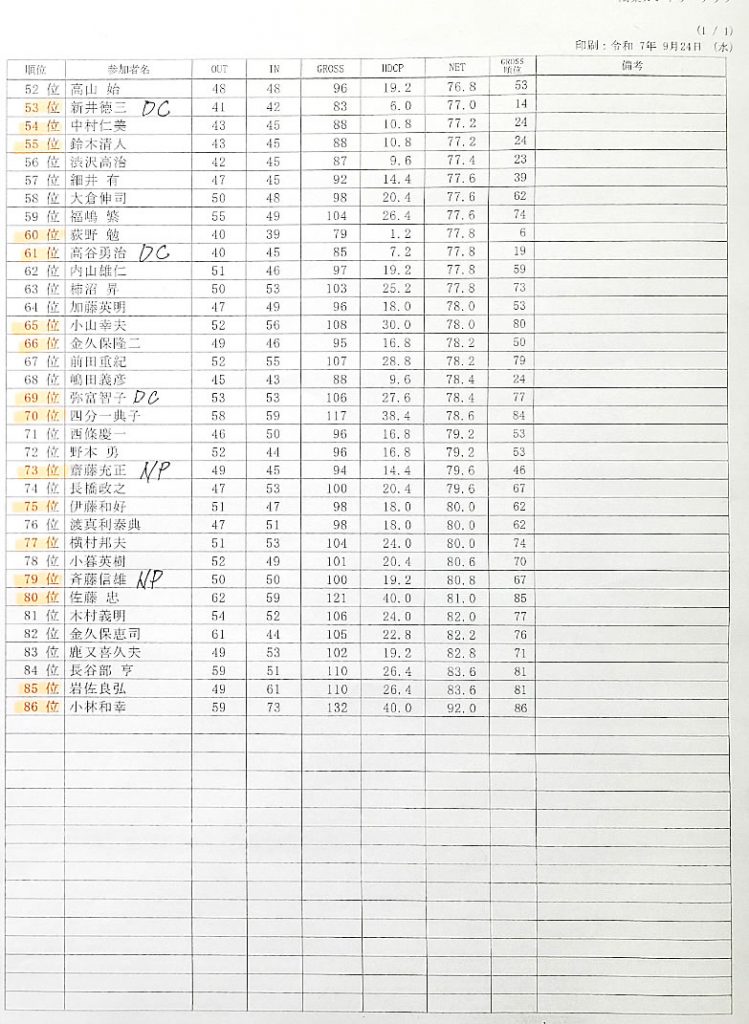 (1 / 1)
印刷：令和 7年 9月24日 (水)
順位 参加者名 OUT IN GROSS HDCP NET GROSS順位 備考
52 位 高山 始 48 48 96 19.2 76.8 53
53 位 新井徳三 DC 41 42 83 6.0 77.0 14
54 位 中村仁美 43 45 88 10.8 77.2 24
55 位 鈴木清人 43 45 88 10.8 77.2 24
56 位 渋沢高治 42 45 87 9.6 77.4 23
57 位 細井 有 47 45 92 14.4 77.6 39
58 位 大倉伸司 50 48 98 20.4 77.6 62
59 位 福嶋 繁 55 49 104 26.4 77.6 74
60 位 荻野 勉 40 39 79 1.2 77.8 6
61 位 高谷勇治 DC 40 45 85 7.2 77.8 19
62 位 内山雄仁 51 46 97 19.2 77.8 59
63 位 柿沼 昇 50 53 103 25.2 77.8 73
64 位 加藤英明 47 49 96 18.0 78.0 53
65 位 小山幸夫 52 56 108 30.0 78.0 80
66 位 金久保隆二 49 46 95 16.8 78.2 50
67 位 前田重紀 52 55 107 28.8 78.2 79
68 位 嶋田義彦 45 43 88 9.6 78.4 24
69 位 弥富智子 DC 53 53 106 27.6 78.4 77
70 位 四分一典子 58 59 117 38.4 78.6 84
71 位 西條慶一 46 50 96 16.8 79.2 53
72 位 野本 勇 52 44 96 16.8 79.2 53
73 位 齋藤充正 NP 49 45 94 14.4 79.6 46
74 位 長橋政之 47 53 100 20.4 79.6 67
75 位 伊藤和好 51 47 98 18.0 80.0 62
76 位 渡真利泰典 47 51 98 18.0 80.0 62
77 位 横村邦夫 51 53 104 24.0 80.0 74
78 位 小暮英樹 52 49 101 20.4 80.6 70
79 位 斉藤信雄 NP 50 50 100 19.2 80.8 67
80 位 佐藤 忠 62 59 121 40.0 81.0 85
81 位 木村義明 54 52 106 24.0 82.0 77
82 位 金久保恵司 61 44 105 22.8 82.2 76
83 位 鹿又喜久夫 49 53 102 19.2 82.8 71
84 位 長谷部 亨 59 51 110 26.4 83.6 81
85 位 岩佐良弘 49 61 110 26.4 83.6 81
86 位 小林和幸 59 73 132 40.0 92.0 86